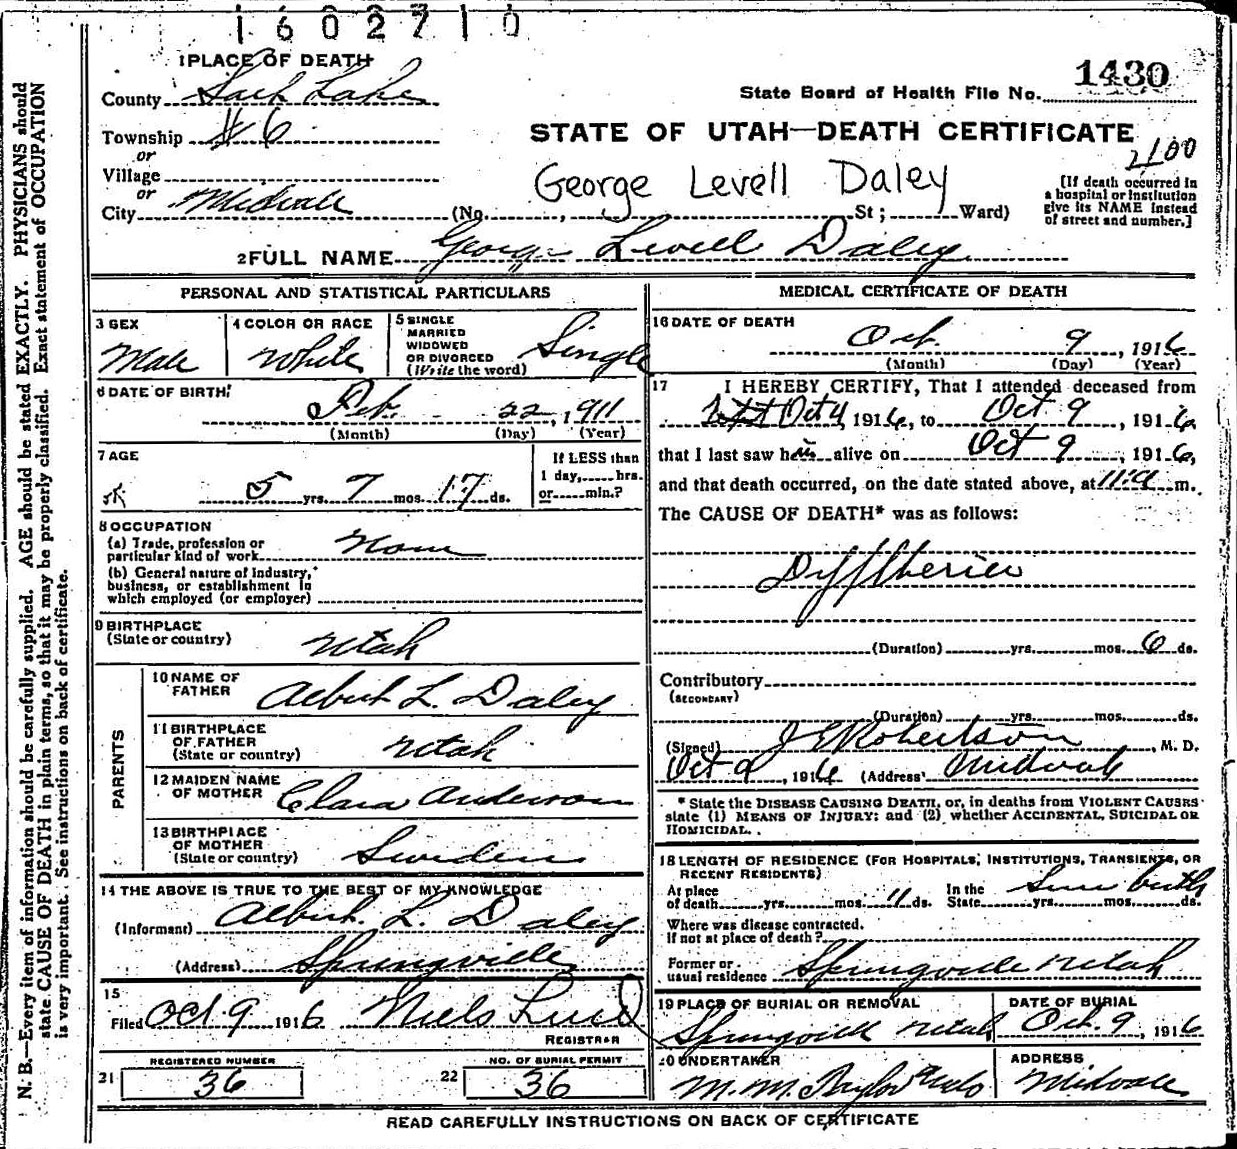 1602710
1 PLACE OF DEATH
1430
County Salt Lake
State Board of Health File No.
Township #6
STATE OF UTAH—DEATH CERTIFICATE
or
2100
Village
George Levell Daley
[If death occurred in
a hospital or institution
give its NAME instead
of street and number.]
or
City Midvale (No. , St ; Ward)
2 FULL NAME George Levell Daley
PERSONAL AND STATISTICAL PARTICULARS
3 SEX
Male
4 COLOR OR RACE
White
5 SINGLE
MARRIED
WIDOWED
OR DIVORCED
(Write the word)
Single
6 DATE OF BIRTH:
Feb. 22, 1911
(Month) (Day) (Year)
7 AGE
5 yrs. 7 mos. 17 ds.
If LESS than
1 day, hrs.
or min.?
8 OCCUPATION
(a) Trade, profession or
particular kind of work None
(b) General nature of industry,
business, or establishment in
which employed (or employer)
9 BIRTHPLACE
(State or country) Utah
PARENTS
10 NAME OF
FATHER Albert L. Daley
11 BIRTHPLACE
OF FATHER
(State or country) Utah
12 MAIDEN NAME
OF MOTHER Clara Anderson
13 BIRTHPLACE
OF MOTHER
(State or country) Sweden
14 THE ABOVE IS TRUE TO THE BEST OF MY KNOWLEDGE
(Informant) Albert L. Daley
(Address) Springville
15
Filed Oct 9 1916 Niels Lind
REGISTRAR
REGISTERED NUMBER
21 36
NO. OF BURIAL PERMIT
22 36
MEDICAL CERTIFICATE OF DEATH
16 DATE OF DEATH
Oct. 9, 1916
(Month) (Day) (Year)
17 I HEREBY CERTIFY, That I attended deceased from
Oct 4, 1916, to Oct 9, 1916,
that I last saw him alive on Oct 9, 1916,
and that death occurred, on the date stated above, at 11:a m.
The CAUSE OF DEATH* was as follows:
Diphtheria
(Duration) yrs. mos. 6 ds.
Contributory
(SECONDARY)
(Duration) yrs. mos. ds.
(Signed) J E Robertson, M. D.
Oct 9, 1916 (Address) Midvale
* State the DISEASE CAUSING DEATH, or, in deaths from VIOLENT CAUSES
state (1) MEANS OF INJURY; and (2) whether ACCIDENTAL, SUICIDAL OR
HOMICIDAL.
18 LENGTH OF RESIDENCE (FOR HOSPITALS, INSTITUTIONS, TRANSIENTS, OR
RECENT RESIDENTS)
At place
of death yrs. mos. 11 ds.
In the
State yrs. mos. ds. Since birth
Where was disease contracted.
If not at place of death?
Former or
usual residence Springville Utah
19 PLACE OF BURIAL OR REMOVAL
Springville Utah
DATE OF BURIAL
Oct. 9, 1916
20 UNDERTAKER
M. M.
ADDRESS
Midvale
READ CAREFULLY INSTRUCTIONS ON BACK OF CERTIFICATE
N. B.—Every item of information should be carefully supplied. AGE should be stated EXACTLY. PHYSICIANS should
state CAUSE OF DEATH in plain terms, so that it may be properly classified. Exact statement of OCCUPATION
is very important. See instructions on back of certificate.